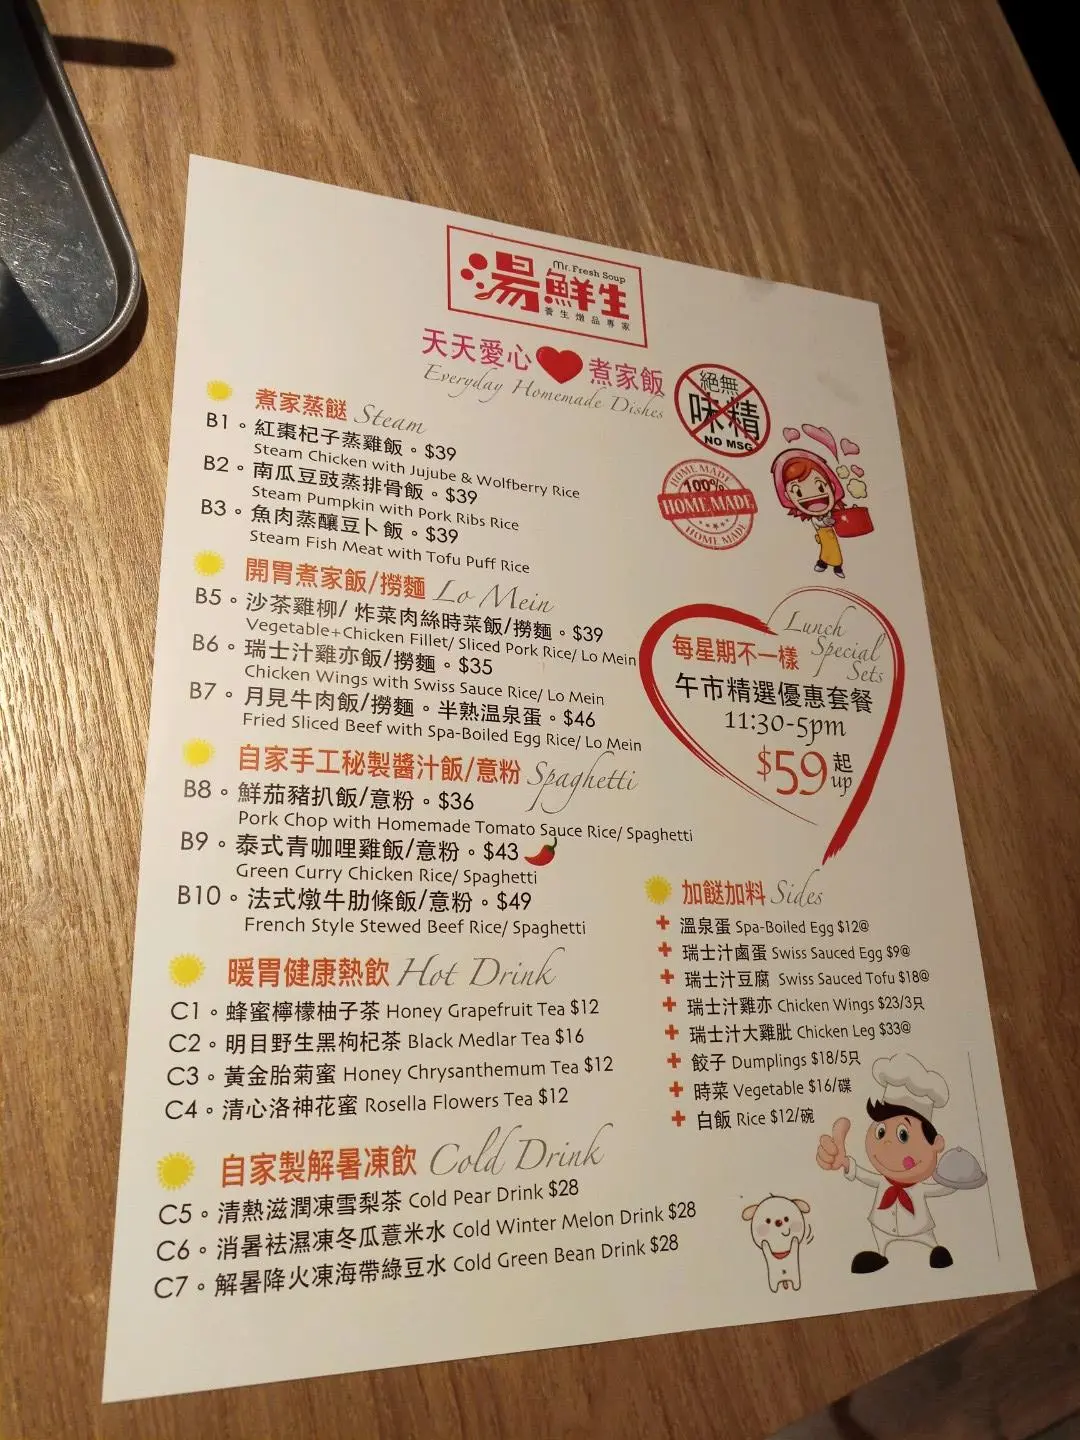 Mr. Fresh Soup
湯鮮生
養生燉品專家
天天愛心 煮家飯
Everyday Homemade Dishes
絕無
味精
NO MSG
HOME MADE
100%
HOME MADE
HOME MADE
煮家蒸餸 Steam
B1。紅棗杞子蒸雞飯。$39
Steam Chicken with Jujube & Wolfberry Rice
B2。南瓜豆豉蒸排骨飯。$39
Steam Pumpkin with Pork Ribs Rice
B3。魚肉蒸釀豆卜飯。$39
Steam Fish Meat with Tofu Puff Rice
開胃煮家飯/撈麵 Lo Mein
B5。沙茶雞柳/ 炸菜肉絲時菜飯/撈麵。$39
Vegetable+Chicken Fillet/ Sliced Pork Rice/ Lo Mein
B6。瑞士汁雞亦飯/撈麵。$35
Chicken Wings with Swiss Sauce Rice/ Lo Mein
B7。月見牛肉飯/撈麵。半熟温泉蛋。$46
Fried Sliced Beef with Spa-Boiled Egg Rice/ Lo Mein
自家手工秘製醬汁飯/意粉 Spaghetti
B8。鮮茄豬扒飯/意粉。$36
Pork Chop with Homemade Tomato Sauce Rice/ Spaghetti
B9。泰式青咖哩雞飯/意粉。$43
Green Curry Chicken Rice/ Spaghetti
B10。法式燉牛肋條飯/意粉。$49
French Style Stewed Beef Rice/ Spaghetti
暖胃健康熱飲 Hot Drink
C1。蜂蜜檸檬柚子茶 Honey Grapefruit Tea $12
C2。明目野生黑枸杞茶 Black Medlar Tea $16
C3。黃金胎菊蜜 Honey Chrysanthemum Tea $12
C4。清心洛神花蜜 Rosella Flowers Tea $12
自家製解暑凍飲 Cold Drink
C5。清熱滋潤凍雪梨茶 Cold Pear Drink $28
C6。消暑袪濕凍冬瓜薏米水 Cold Winter Melon Drink $28
C7。解暑降火凍海帶綠豆水 Cold Green Bean Drink $28
Lunch
Special
Sets
每星期不一樣
午市精選優惠套餐
11:30-5pm
$59起
up
加餸加料 Sides
+ 溫泉蛋 Spa-Boiled Egg $12@
+ 瑞士汁鹵蛋 Swiss Sauced Egg $9@
+ 瑞士汁豆腐 Swiss Sauced Tofu $18@
+ 瑞士汁雞亦 Chicken Wings $23/3只
+ 瑞士汁大雞肶 Chicken Leg $33@
+ 餃子 Dumplings $18/5只
+ 時菜 Vegetable $16/碟
+ 白飯 Rice $12/碗